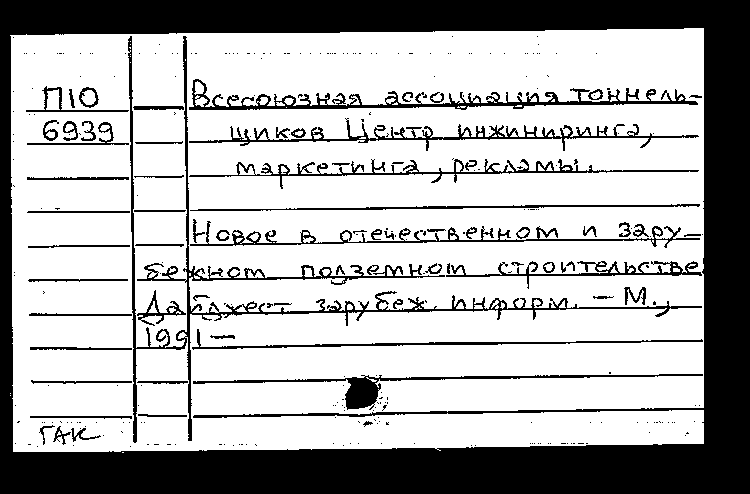 П10
6939
Всесоюзная ассоциация тоннель-
щиков Центр инжиниринга,
маркетинга, рекламы.
Новое в отечественном и зару-
бежном подземном строительстве
Дайджест зарубеж. информ. – М.,
1991 –
ГАК